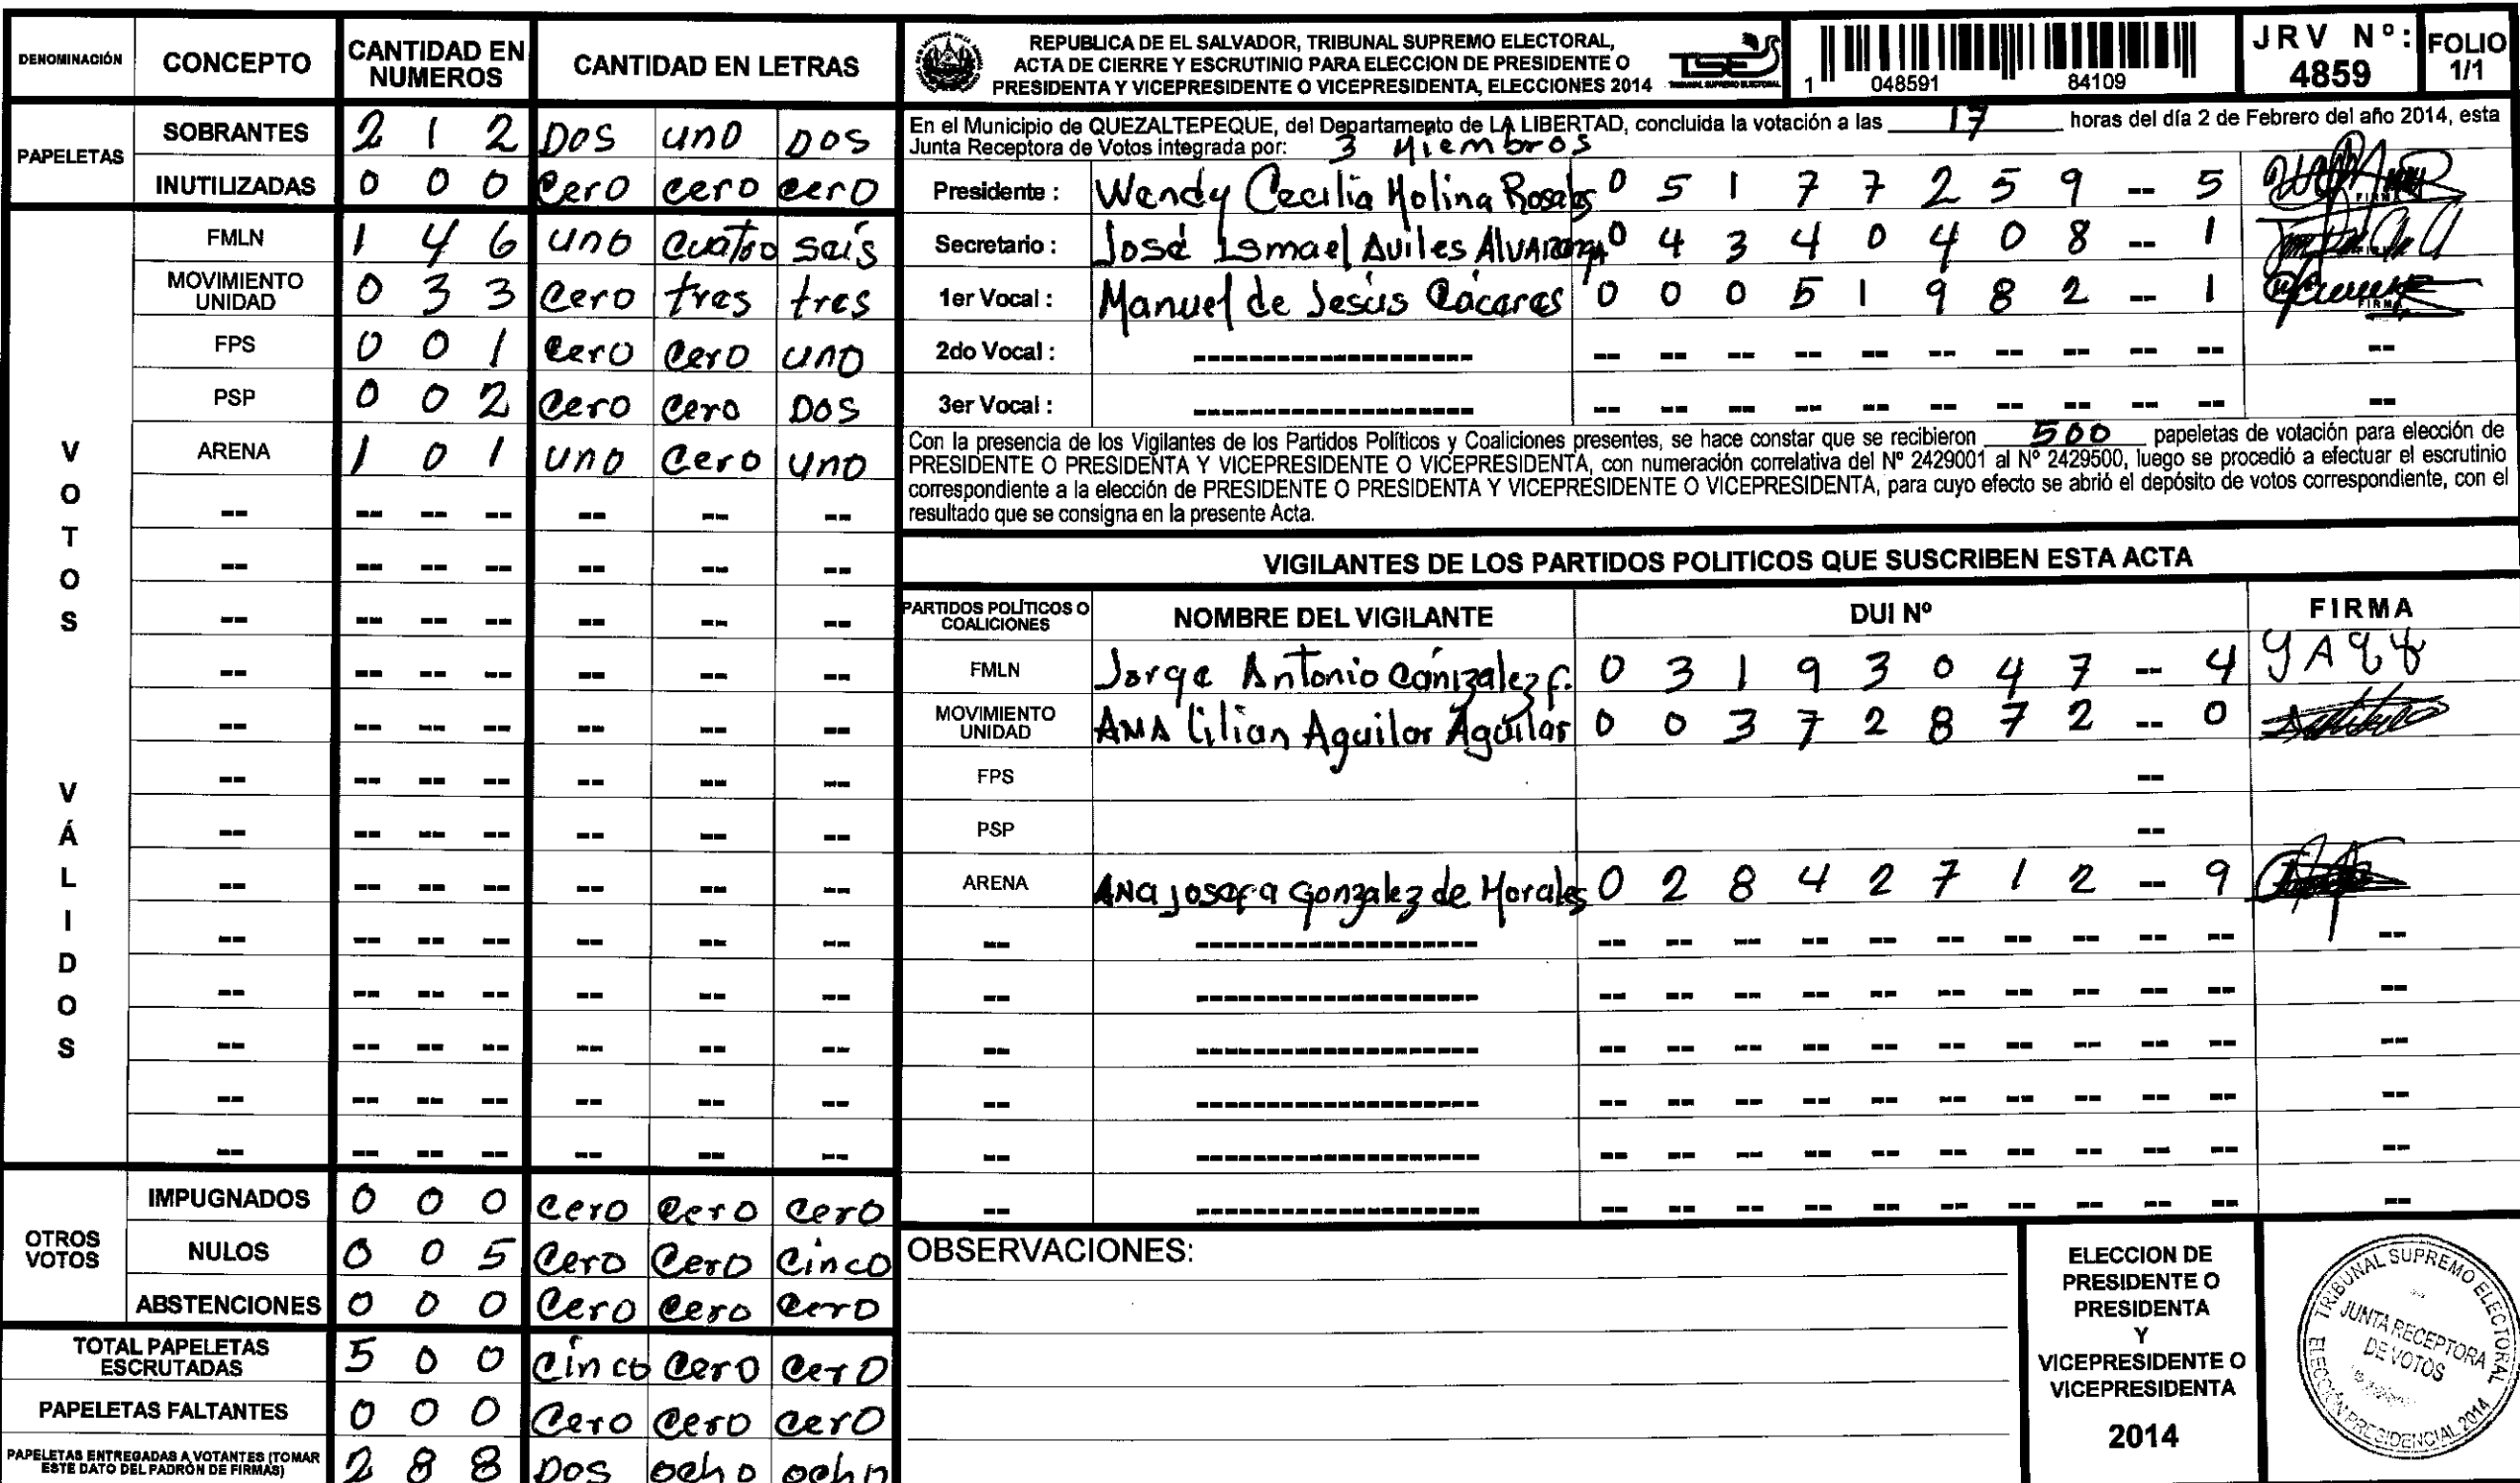 DENOMINACIÓN CONCEPTO CANTIDAD EN NUMEROS CANTIDAD EN LETRAS
PAPELETAS
SOBRANTES 2 1 2 DOS uno DOS
INUTILIZADAS 0 0 0 Cero cero cero
VOTOS VÁLIDOS
FMLN 1 4 6 uno cuatro seis
MOVIMIENTO UNIDAD 0 3 3 Cero tres tres
FPS 0 0 1 Cero Cero uno
PSP 0 0 2 Cero Cero DOS
ARENA 1 0 1 uno Cero uno
-- -- -- -- -- -- --
-- -- -- -- -- -- --
-- -- -- -- -- -- --
-- -- -- -- -- -- --
-- -- -- -- -- -- --
-- -- -- -- -- -- --
-- -- -- -- -- -- --
-- -- -- -- -- -- --
-- -- -- -- -- -- --
-- -- -- -- -- -- --
-- -- -- -- -- -- --
-- -- -- -- -- -- --
-- -- -- -- -- -- --
OTROS VOTOS
IMPUGNADOS 0 0 0 Cero Cero Cero
NULOS 0 0 5 Cero Cero Cinco
ABSTENCIONES 0 0 0 Cero Cero Cero
TOTAL PAPELETAS ESCRUTADAS 5 0 0 Cinco Cero Cero
PAPELETAS FALTANTES 0 0 0 Cero Cero Cero
PAPELETAS ENTREGADAS A VOTANTES (TOMAR ESTE DATO DEL PADRÓN DE FIRMAS) 2 8 8 DOS ocho ocho
REPUBLICA DE EL SALVADOR, TRIBUNAL SUPREMO ELECTORAL,
ACTA DE CIERRE Y ESCRUTINIO PARA ELECCION DE PRESIDENTE O
PRESIDENTA Y VICEPRESIDENTE O VICEPRESIDENTA, ELECCIONES 2014
TSE
TRIBUNAL SUPREMO ELECTORAL
1 048591 84109
JRV Nº: 4859
FOLIO 1/1
En el Municipio de QUEZALTEPEQUE, del Departamento de LA LIBERTAD, concluida la votación a las 17 horas del día 2 de Febrero del año 2014, esta
Junta Receptora de Votos integrada por: 3 Miembros
Presidente : Wendy Cecilia Molina Rosales 0 5 1 7 7 2 5 9 -- 5 FIRMA
Secretario : José Ismael Aviles Alvarenga 0 4 3 4 0 4 0 8 -- 1
1er Vocal : Manuel de Jesús Cáceres 0 0 0 5 1 9 8 2 -- 1 FIRMA
2do Vocal : ------------------- -- -- -- -- -- -- -- -- -- -- --
3er Vocal : ------------------- -- -- -- -- -- -- -- -- -- -- --
Con la presencia de los Vigilantes de los Partidos Políticos y Coaliciones presentes, se hace constar que se recibieron 500 papeletas de votación para elección de
PRESIDENTE O PRESIDENTA Y VICEPRESIDENTE O VICEPRESIDENTA, con numeración correlativa del Nº 2429001 al Nº 2429500, luego se procedió a efectuar el escrutinio
correspondiente a la elección de PRESIDENTE O PRESIDENTA Y VICEPRESIDENTE O VICEPRESIDENTA, para cuyo efecto se abrió el depósito de votos correspondiente, con el
resultado que se consigna en la presente Acta.
VIGILANTES DE LOS PARTIDOS POLITICOS QUE SUSCRIBEN ESTA ACTA
PARTIDOS POLÍTICOS O COALICIONES NOMBRE DEL VIGILANTE DUI Nº FIRMA
FMLN Jorge Antonio Canizalez F. 0 3 1 9 3 0 4 7 -- 4
MOVIMIENTO UNIDAD ANA Lilian Aguilar Aguilar 0 0 3 7 2 8 7 2 -- 0
FPS --
PSP --
ARENA ANA Josefa Gonzalez de Morales 0 2 8 4 2 7 1 2 -- 9
-- ------------------- -- -- -- -- -- -- -- -- -- -- --
-- ------------------- -- -- -- -- -- -- -- -- -- -- --
-- ------------------- -- -- -- -- -- -- -- -- -- -- --
-- ------------------- -- -- -- -- -- -- -- -- -- -- --
-- ------------------- -- -- -- -- -- -- -- -- -- -- --
-- ------------------- -- -- -- -- -- -- -- -- -- -- --
OBSERVACIONES:
ELECCION DE
PRESIDENTE O
PRESIDENTA
Y
VICEPRESIDENTE O
VICEPRESIDENTA
2014
TRIBUNAL SUPREMO ELECTORAL
JUNTA RECEPTORA
DE VOTOS
ELECCIÓN PRESIDENCIAL 2014